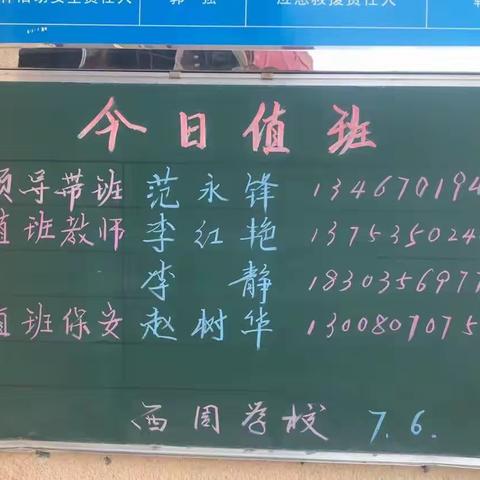 作活动安全责任人 郭强 应急救援责任人
今日值班
领导带班 范永锋 134670194
值班教师 李红艳 137535024
李静 183035697
值班保安 赵树华 1300807075
西周学校 7.6.